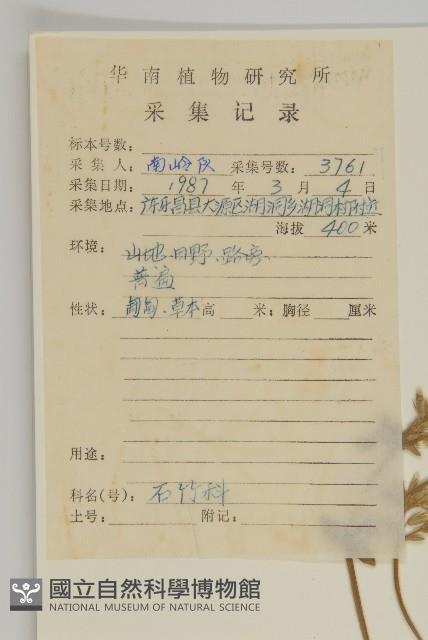 华南植物研究所
采集记录
标本号数:
采集人: 南岭队 采集号数: 3761
采集日期: 1987 年 3 月 4 日
采集地点: 乐昌县大源区湖洞乡湖洞村附近
海拔 400 米
环境: 山地、田野、路旁、
普遍
性状: 匍匐、草本 高 米; 胸径 厘米
用途:
科名(号): 石竹科
土号: 附记:
國立自然科學博物館
NATIONAL MUSEUM OF NATURAL SCIENCE